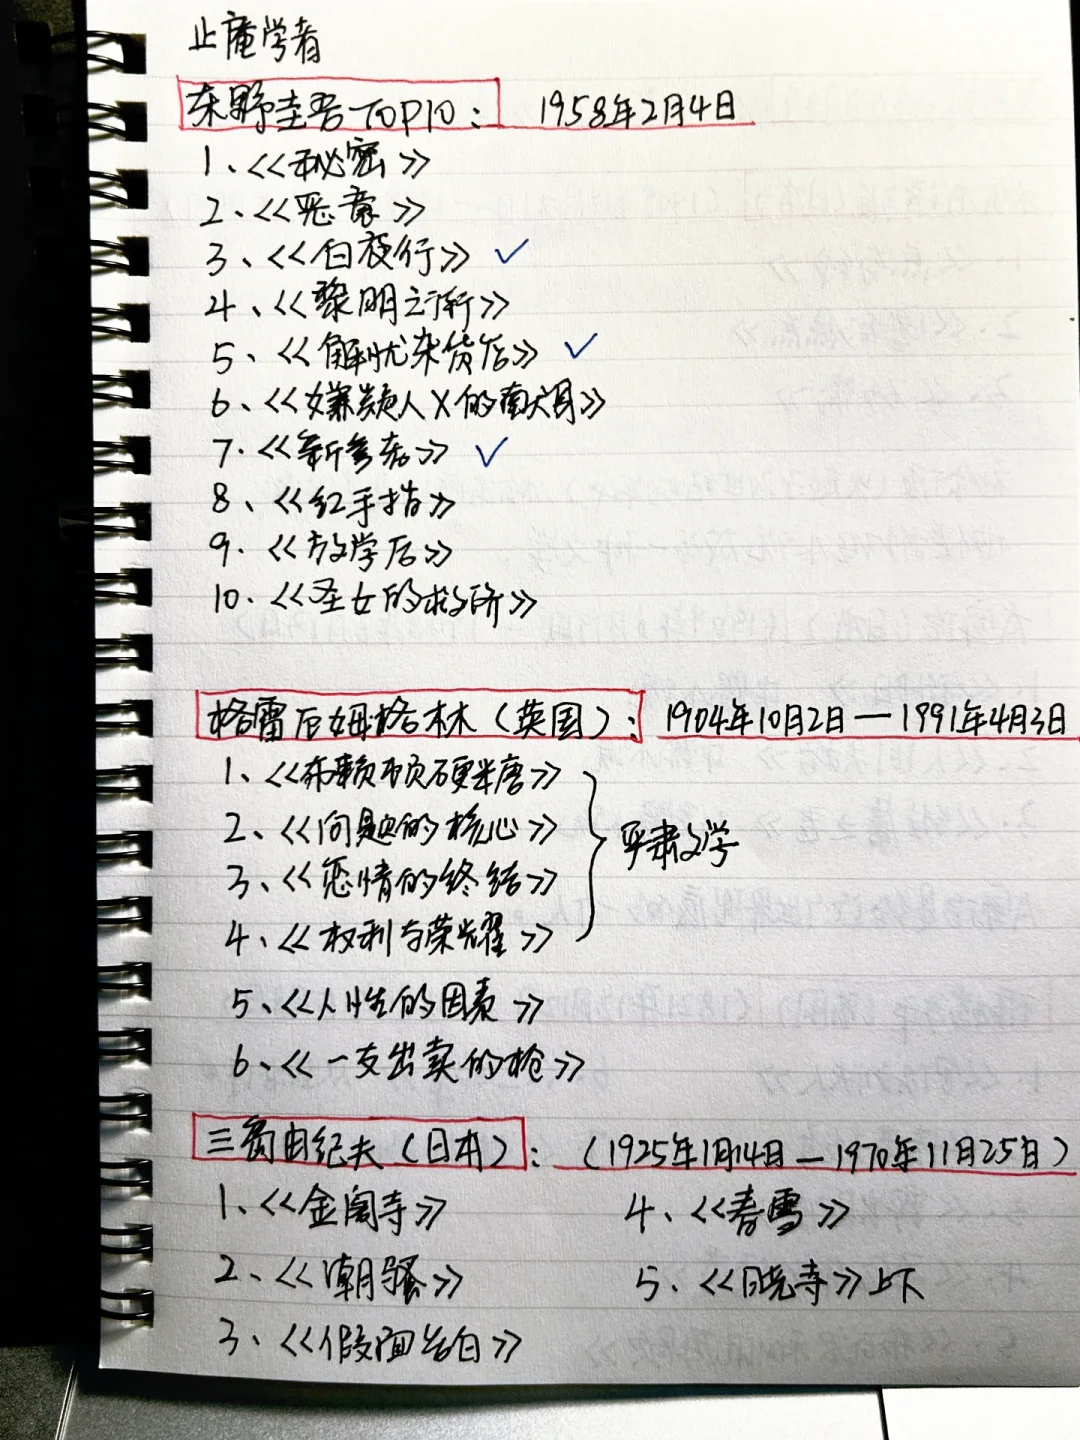 止庵学者
东野圭吾TOP10： 1958年2月4日
1、<<秘密>>
2、<<恶意>>
3、<<白夜行>> ✓
4、<<黎明之街>>
5、<<解忧杂货店>> ✓
6、<<嫌疑人X的献身>>
7、<<新参者>> ✓
8、<<红手指>>
9、<<放学后>>
10、<<圣女的救济>>
格雷厄姆格林（英国）： 1904年10月2日—1991年4月3日
1、<<布赖顿硬糖>>
2、<<问题的核心>>
严肃文学
3、<<恋情的终结>>
4、<<权利与荣耀>>
5、<<人性的因素>>
6、<<一支出卖的枪>>
三岛由纪夫（日本）： （1925年1月14日—1970年11月25日）
1、<<金阁寺>> 4、<<春雪>>
2、<<潮骚>> 5、<<晓寺>>上下
3、<<假面告白>>